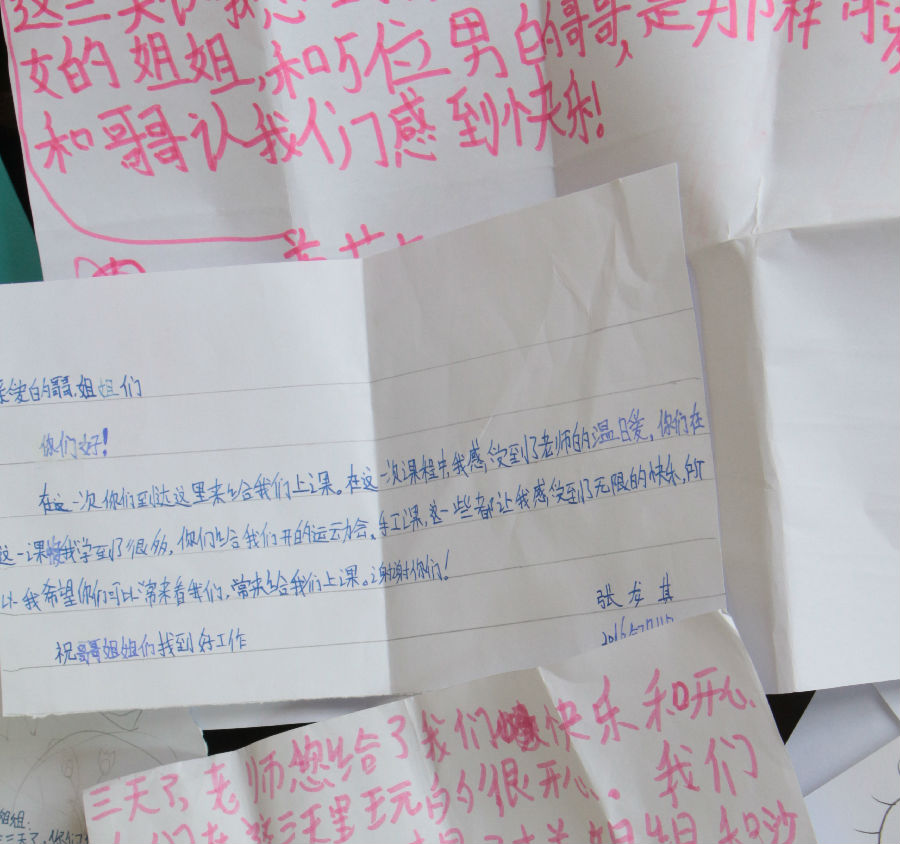 这三天
女的姐姐,和5位男的哥哥,是那样
和哥哥认我们感到快乐!
亲爱的哥哥,姐姐们
你们好!
在这一次你们到达这里来给我们上课。在这一次课程中,我感受到了老师的温暖,你们在
这一课我学到了很多,你们给我们开的运动会,手工课,这一些都让我感受到了无限的快乐,所
以我希望你们可以常来看我们,常来给我们上课。谢谢你们!
张龙其
祝哥哥姐姐们找到好工作
2016
三天了,老师您给了我们快乐和开心.
三天里玩的很开心.我们
姐姐和
姐姐.
三天了,你们